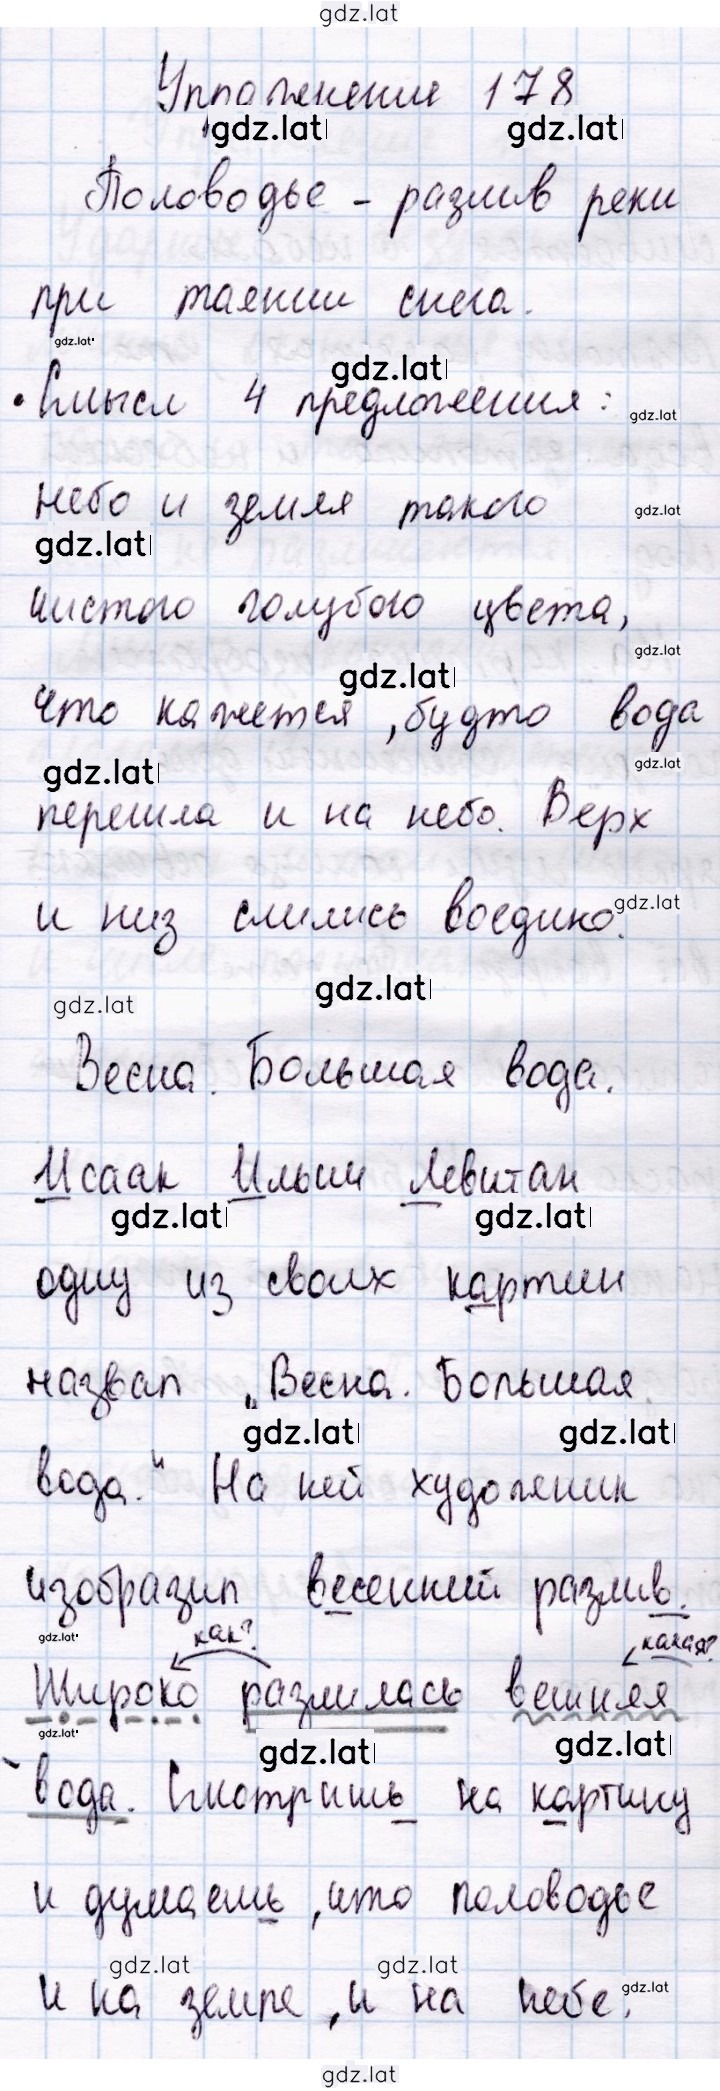 gdz.lat
Упражнение 178
gdz.lat gdz.lat
Половодье – разлив реки
при таянии снега.
gdz.lat
gdz.lat
• Смысл 4 предложения:
gdz.lat
небо и земля такого
gdz.lat
gdz.lat
чистого голубого цвета,
gdz.lat
gdz.lat
что кажется, будто вода
gdz.lat
gdz.lat
перешла и на небо. Верх
и низ слились воедино.
gdz.lat
gdz.lat
gdz.lat
Весна. Большая вода.
Исаак Ильич Левитан
gdz.lat gdz.lat
одну из своих картин
назвал „Весна. Большая
gdz.lat gdz.lat
вода." На ней художник
изобразил весенний разлив.
gdz.lat
как? какая?
Широко разлилась вешняя
gdz.lat
gdz.lat gdz.lat
вода. Смотришь на картину
и думаешь, что половодье
gdz.lat gdz.lat
и на земле, и на небе.
gdz.lat
gdz.lat